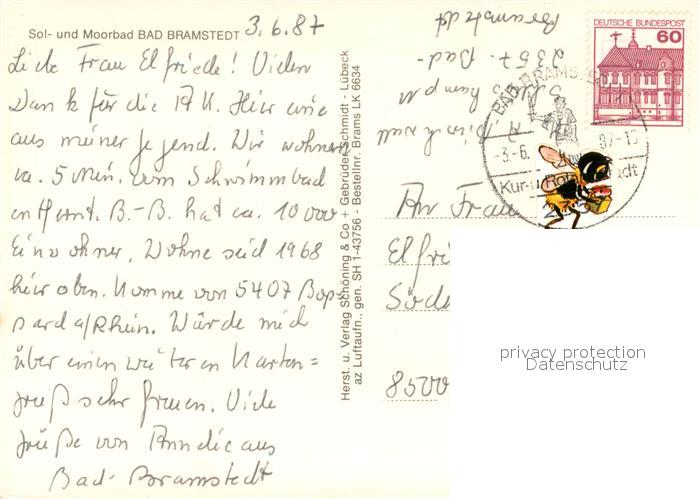 Sol- und Moorbad BAD BRAMSTEDT 3.6.87
Liebe Frau Elfriede! Vielen
Dank für die AK. Hier eine
aus meiner Gegend. Wir wohnen
ca. 5 Min. vom Schwimmbad
entfernt. B.-B. hat ca. 10 000
Einwohner. Wohne seid 1968
hier oben. Komme von 5407 Bop-
pard a/Rhein. Würde mich
über einen weiteren Karten=
gruß sehr freuen. Viele
Grüße von Annelie aus
Bad-Bramstedt
Herst. u. Verlag Schöning & Co + Gebrüder Schmidt - Lübeck
az Luftaufn., gen. SH 1-43756 - Bestellnr. Brams LK 6634
2357 Bad-
Bramstedt
DEUTSCHE BUNDESPOST
60
BAD BRAMSTEDT
-3.-6. 87-1
Kur-
An Frau
Elfri
Söde
8500
privacy protection
Datenschutz